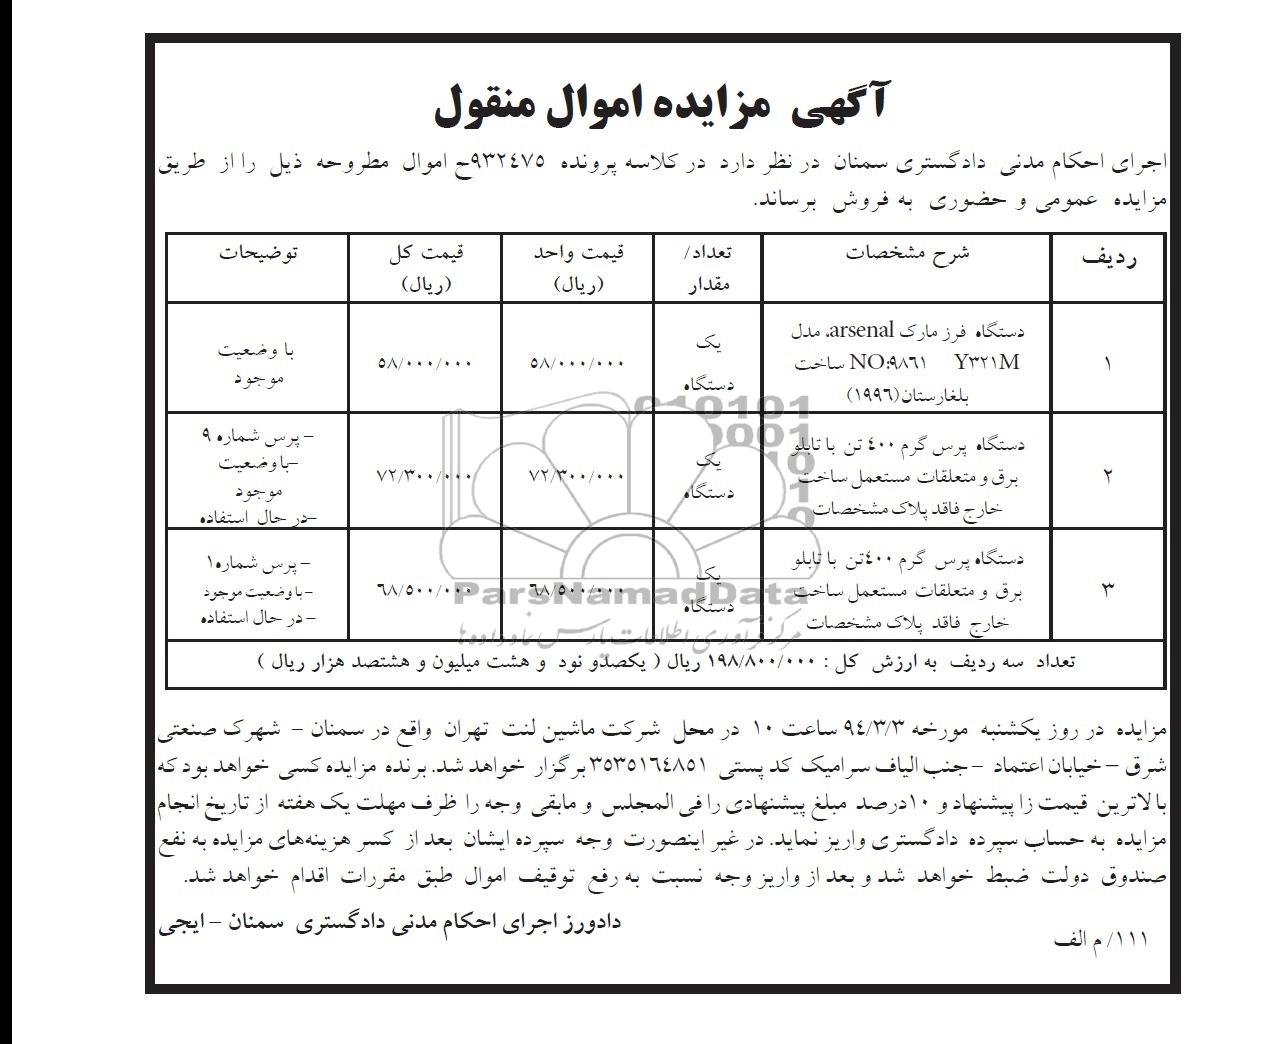 آگهی مزایده اموال منقول
اجرای احکام مدنی دادگستری سمنان در نظر دارد در کلاسه پرونده ۹۳۲۴۷۵ح اموال مطروحه ذیل را از طریق
مزایده عمومی و حضوری به فروش برساند.
ردیف
شرح مشخصات
تعداد/
مقدار
قیمت واحد
(ریال)
قیمت کل
(ریال)
توضیحات
۱
دستگاه فرز مارک arsenal، مدل
NO:۹۸۶۱ Y۳۲۱M ساخت
بلغارستان(۱۹۹۶)
یک
دستگاه
۵۸/۰۰۰/۰۰۰
۵۸/۰۰۰/۰۰۰
با وضعیت
موجود
۲
دستگاه پرس گرم ۴۰۰ تن با تابلو
برق و متعلقات مستعمل ساخت
خارج فاقد پلاک مشخصات
یک
دستگاه
۷۲/۳۰۰/۰۰۰
۷۲/۳۰۰/۰۰۰
– پرس شماره ۹
–با وضعیت
موجود
–در حال استفاده
۳
دستگاه پرس گرم ۴۰۰تن با تابلو
برق و متعلقات مستعمل ساخت
خارج فاقد پلاک مشخصات
یک
دستگاه
۶۸/۵۰۰/۰۰۰
۶۸/۵۰۰/۰۰۰
– پرس شماره۱
–با وضعیت موجود
– در حال استفاده
تعداد سه ردیف به ارزش کل : ۱۹۸/۸۰۰/۰۰۰ ریال ( یکصدو نود و هشت میلیون و هشتصد هزار ریال )
مزایده در روز یکشنبه مورخه ۹۴/۳/۳ ساعت ۱۰ در محل شرکت ماشین لنت تهران واقع در سمنان – شهرک صنعتی
شرق – خیابان اعتماد – جنب الیاف سرامیک کد پستی ۳۵۳۵۱۶۴۸۵۱ برگزار خواهد شد. برنده مزایده کسی خواهد بود که
بالاترین قیمت را پیشنهاد و ۱۰درصد مبلغ پیشنهادی را فی المجلس و مابقی وجه را ظرف مهلت یک هفته از تاریخ انجام
مزایده به حساب سپرده دادگستری واریز نماید. در غیر اینصورت وجه سپرده ایشان بعد از کسر هزینه‌های مزایده به نفع
صندوق دولت ضبط خواهد شد و بعد از واریز وجه نسبت به رفع توقیف اموال طبق مقررات اقدام خواهد شد.
دادورز اجرای احکام مدنی دادگستری سمنان – ایجی
۱۱۱/ م الف
ParsNamadData
مرکز فرآوری اطلاعات پارس نماد داده ها